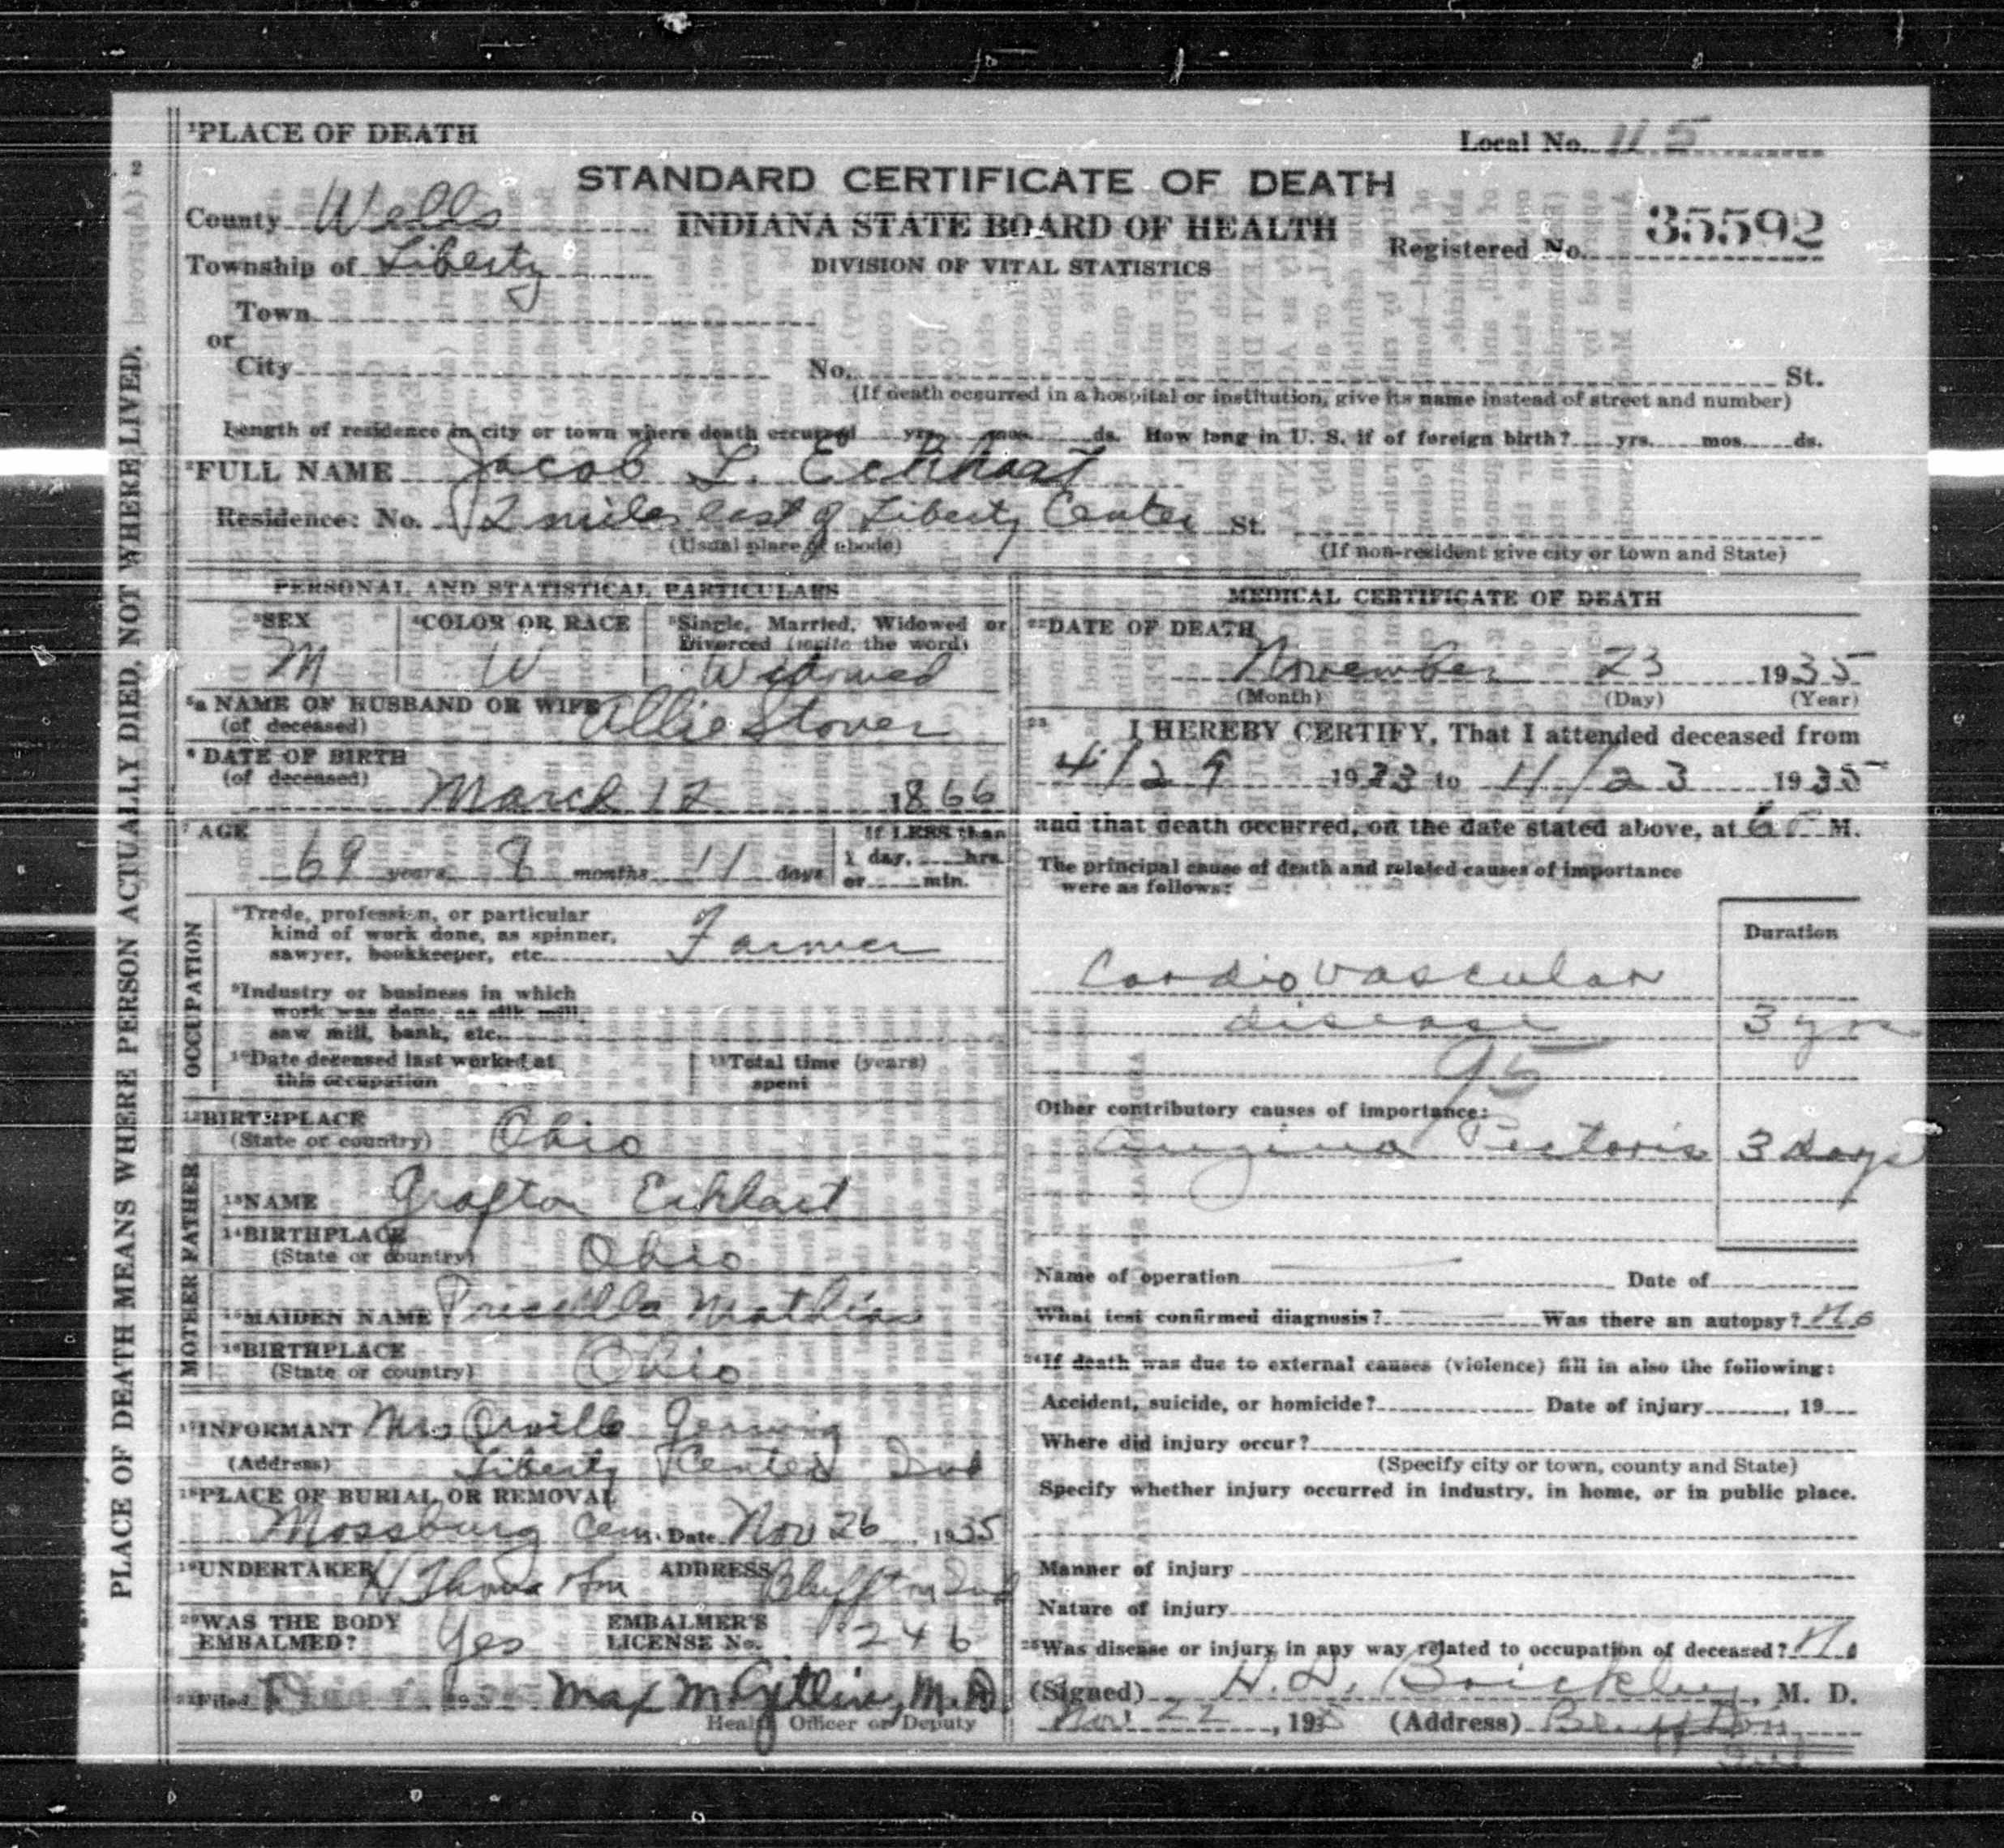 ¹PLACE OF DEATH
Local No. 115
STANDARD CERTIFICATE OF DEATH
County Wells
INDIANA STATE BOARD OF HEALTH
Registered No. 35592
Township of Liberty
DIVISION OF VITAL STATISTICS
Town
or
City No. St.
(If death occurred in a hospital or institution, give its name instead of street and number)
Length of residence in city or town where death occurred yrs. mos. ds. How long in U. S. if of foreign birth? yrs. mos. ds.
²FULL NAME Jacob L. Eckhart
Residence: No. 2 miles east of Liberty Center St.
(Usual place of abode)
(If non-resident give city or town and State)
PERSONAL AND STATISTICAL PARTICULARS
³SEX
M
⁴COLOR OR RACE
W
⁵Single, Married, Widowed or
Divorced (write the word)
Widowed
⁵ᵃ NAME OF HUSBAND OR WIFE Allie Stover
(of deceased)
⁶ DATE OF BIRTH
(of deceased)
March 12 1866
⁷ AGE
69 years 8 months 11 days
If LESS than
1 day, hrs.
or min.
OCCUPATION
⁸Trade, profession, or particular
kind of work done, as spinner,
sawyer, bookkeeper, etc. Farmer
⁹Industry or business in which
work was done, as silk mill,
saw mill, bank, etc.
¹⁰Date deceased last worked at
this occupation
¹¹Total time (years)
spent
¹²BIRTHPLACE
(State or country) Ohio
FATHER
¹³NAME Grafton Eckhart
¹⁴BIRTHPLACE
(State or country) Ohio
MOTHER
¹⁵MAIDEN NAME Priscilla Mathias
¹⁶BIRTHPLACE
(State or country) Ohio
¹⁷INFORMANT Mrs Orville
(Address) Liberty Center Ind
¹⁸PLACE OF BURIAL OR REMOVAL
Mossburg Cem. Date Nov 26, 1935
¹⁹UNDERTAKER H Thoma & Son ADDRESS Bluffton Ind
²⁰WAS THE BODY
EMBALMED? Yes
EMBALMER'S
LICENSE No. 246
²¹Filed Max M Gitlin, M.D.
Health Officer or Deputy
MEDICAL CERTIFICATE OF DEATH
²²DATE OF DEATH
November 23 1935
(Month) (Day) (Year)
²³ I HEREBY CERTIFY, That I attended deceased from
4/29 1933 to 11/23 1935
and that death occurred, on the date stated above, at M.
The principal cause of death and related causes of importance
were as follows:
Duration
Cardio Vascular
disease 3 yrs
95
Other contributory causes of importance:
Angina Pectoris 3 days
Name of operation Date of
What test confirmed diagnosis? Was there an autopsy? No
²⁴If death was due to external causes (violence) fill in also the following:
Accident, suicide, or homicide? Date of injury , 19
Where did injury occur?
(Specify city or town, county and State)
Specify whether injury occurred in industry, in home, or in public place.
Manner of injury
Nature of injury
²⁵Was disease or injury in any way related to occupation of deceased? No
(Signed) H. D. Brickley, M. D.
Nov 22, 1935 (Address) Bluffton
Ind
PLACE OF DEATH MEANS WHERE PERSON ACTUALLY DIED, NOT WHERE LIVED.